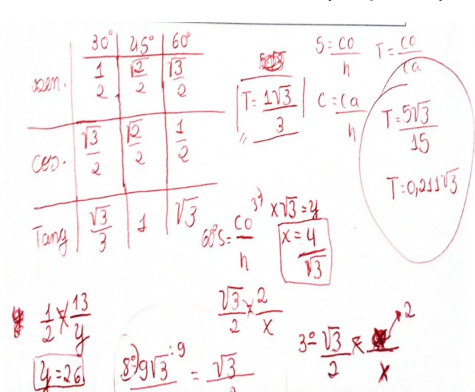 30° 45° 60°
sen. 1/2 √2/2 √3/2
cos. √3/2 √2/2 1/2
Tang √3/3 1 √3
S = co/h T = co/ca
T = 1√3/3
C = ca/h
T = 5√3/15
T = 0,211√3
60° S = co/h
3º x√3 = y
x = 4/√3
1/2 × 13/y
y = 26
√3/2 × 2/x
8º) 9√3 :9 = √3
3º √3/2 × /x 2